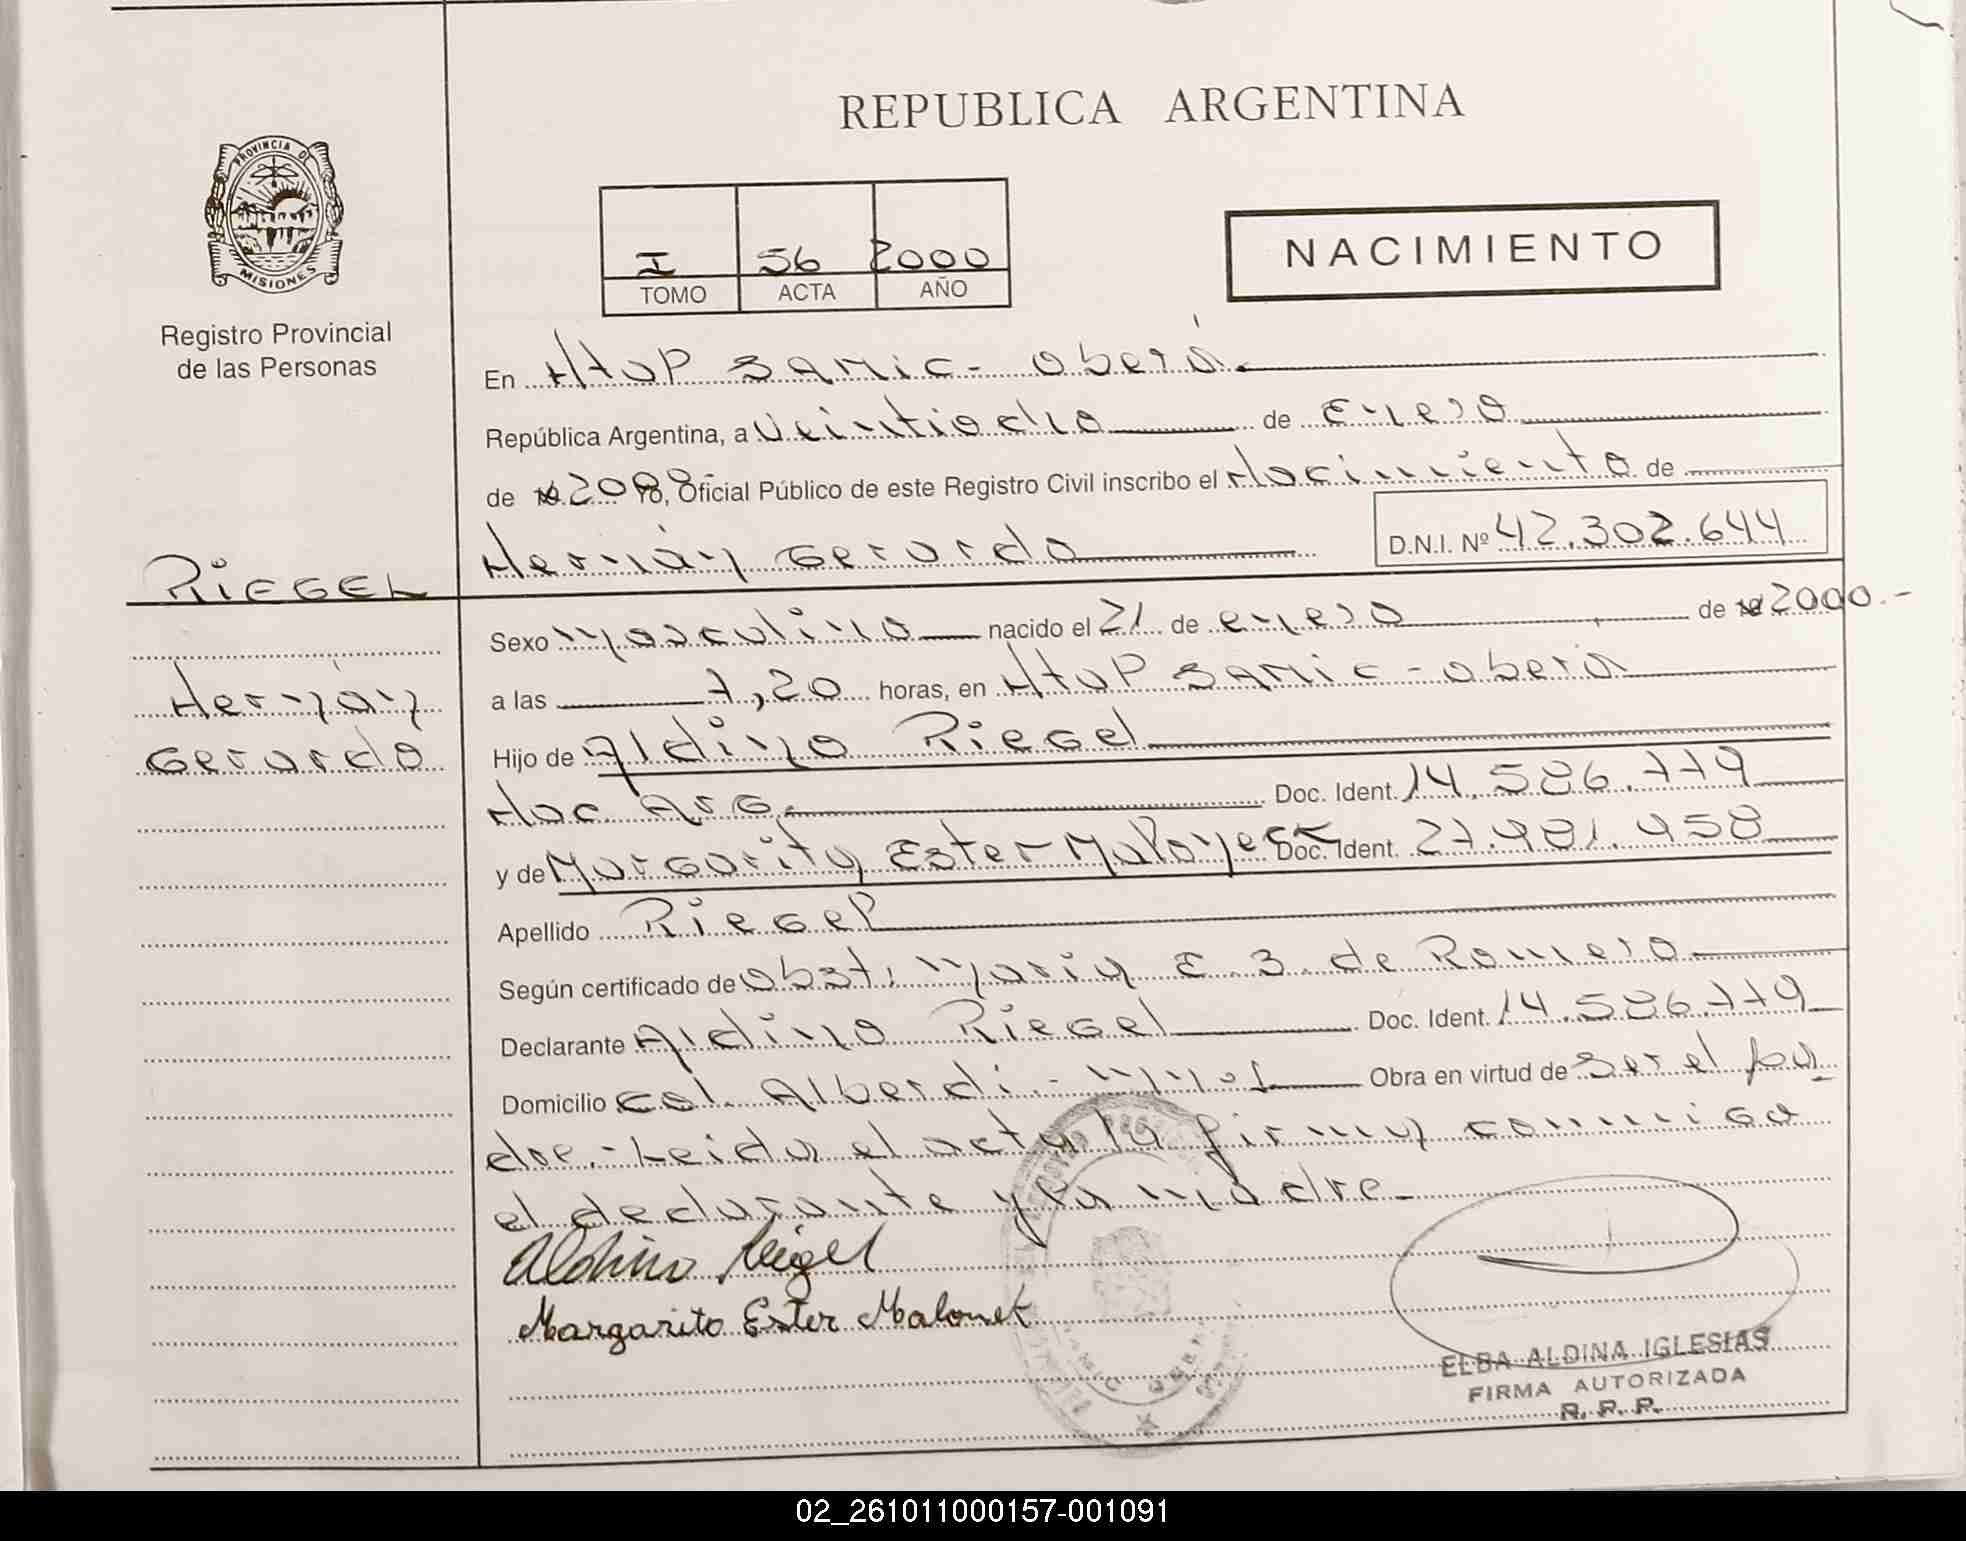 REPUBLICA ARGENTINA
PROVINCIA DE
MISIONES
Registro Provincial
de las Personas
I 56 2000
TOMO ACTA AÑO
NACIMIENTO
En Htal Samic - Oberá
República Argentina, a veintiocho de Enero
de 2000 Yo, Oficial Público de este Registro Civil inscribo el Nacimiento de
Hernán Gerardo D.N.I. Nº 42.302.644
RIEGEL
Hernán
Gerardo
Sexo masculino nacido el 21 de enero de 2000.-
a las 7,20 horas, en Htal Samic - Oberá
Hijo de Aldino Riegel
Nac. Arg. Doc. Ident. 14.586.779
y de Margarita Ester Malonek Doc. Ident. 27.481.458
Apellido Riegel
Según certificado de obst. María E. S. de Romero
Declarante Aldino Riegel Doc. Ident. 14.586.779
Domicilio Col. Alberdi - Mnes Obra en virtud de ser el pa
dre.- Leida el acta la firman conmigo
el declarante y la madre.-
Aldino Riegel
Margarita Ester Malonek
ELBA ALDINA IGLESIAS
FIRMA AUTORIZADA
R. P. P.
02_261011000157-001091